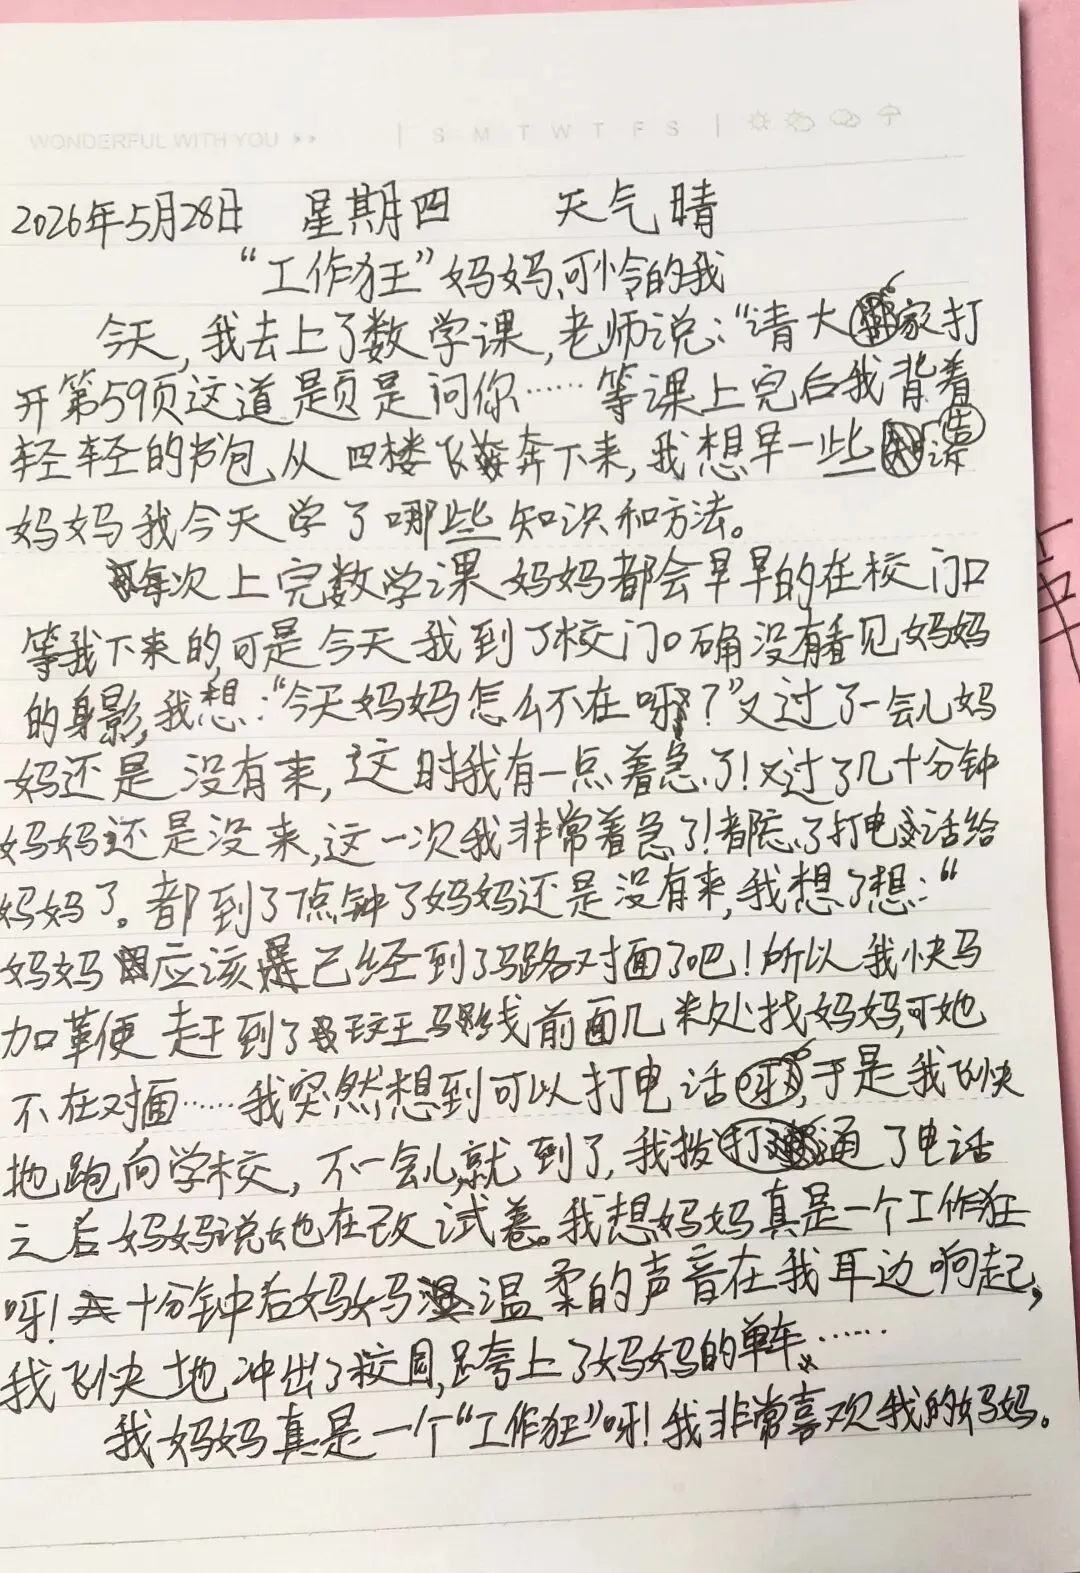 WONDERFUL WITH YOU
| S M T W T F S |
2026年5月28日 星期四 天气晴
“工作狂”妈妈,可怜的我
今天,我去上了数学课,老师说:“请大家打
开第59页这道题是问你……等课上完后我背着
轻轻的书包,从四楼飞奔下来,我想早一些告诉
妈妈我今天学了哪些知识和方法。
每次上完数学课妈妈都会早早的在校门口
等我下来的,可是今天我到了校门口确没有看见妈妈
的身影,我想:“今天妈妈怎么不在呀?”又过了一会儿妈
妈还是没有来,这时我有一点着急了!又过了几十分钟
妈妈还是没来,这一次我非常着急了!都忘了打电话给
妈妈了。都到了7点钟了妈妈还是没有来,我想了想:“
妈妈应该已经到了马路对面了吧!所以我快马
加革便赶到了斑马线前面几米处找妈妈,可她
不在对面……我突然想到可以打电话,于是我飞快
地跑向学校,不一会儿就到了,我拨通了电话
之后妈妈说她在改试卷。我想妈妈真是一个工作狂
呀!十分钟后妈妈温柔的声音在我耳边响起,
我飞快地冲出了校园,跨上了妈妈的单车……
我妈妈真是一个“工作狂”呀!我非常喜欢我的妈妈。